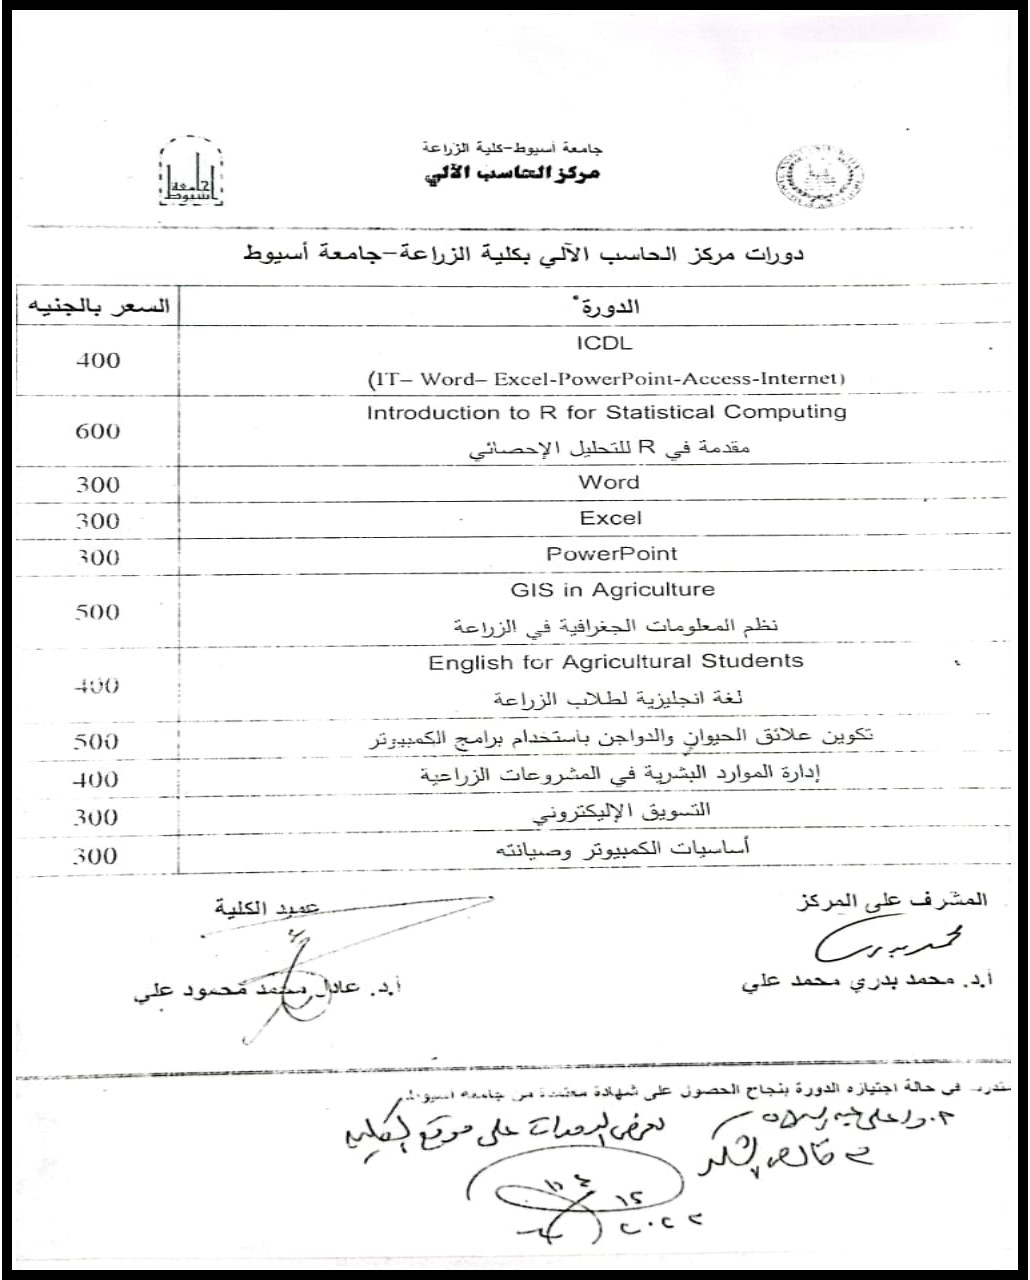 جامعة أسيوط-كلية الزراعة
مركز الحاسب الآلي
جامعة
أسيوط
دورات مركز الحاسب الآلي بكلية الزراعة-جامعة أسيوط
الدورة* السعر بالجنيه
ICDL
(IT– Word– Excel-PowerPoint-Access-Internet)
400
Introduction to R for Statistical Computing
مقدمة في R للتحليل الإحصائي
600
Word 300
Excel 300
PowerPoint 300
GIS in Agriculture
نظم المعلومات الجغرافية في الزراعة
500
English for Agricultural Students
لغة انجليزية لطلاب الزراعة
400
تكوين علائق الحيوان والدواجن باستخدام برامج الكمبيوتر 500
إدارة الموارد البشرية في المشروعات الزراعية 400
التسويق الإليكتروني 300
أساسيات الكمبيوتر وصيانته 300
المشرف على المركز
عميد الكلية
أ.د. محمد بدري محمد علي
أ.د. عادل محمد محمود علي
في حالة اجتيازه الدورة بنجاح الحصول على شهادة معتمدة من جامعة أسيوط.
لعرض الدورات على موقع الكلية